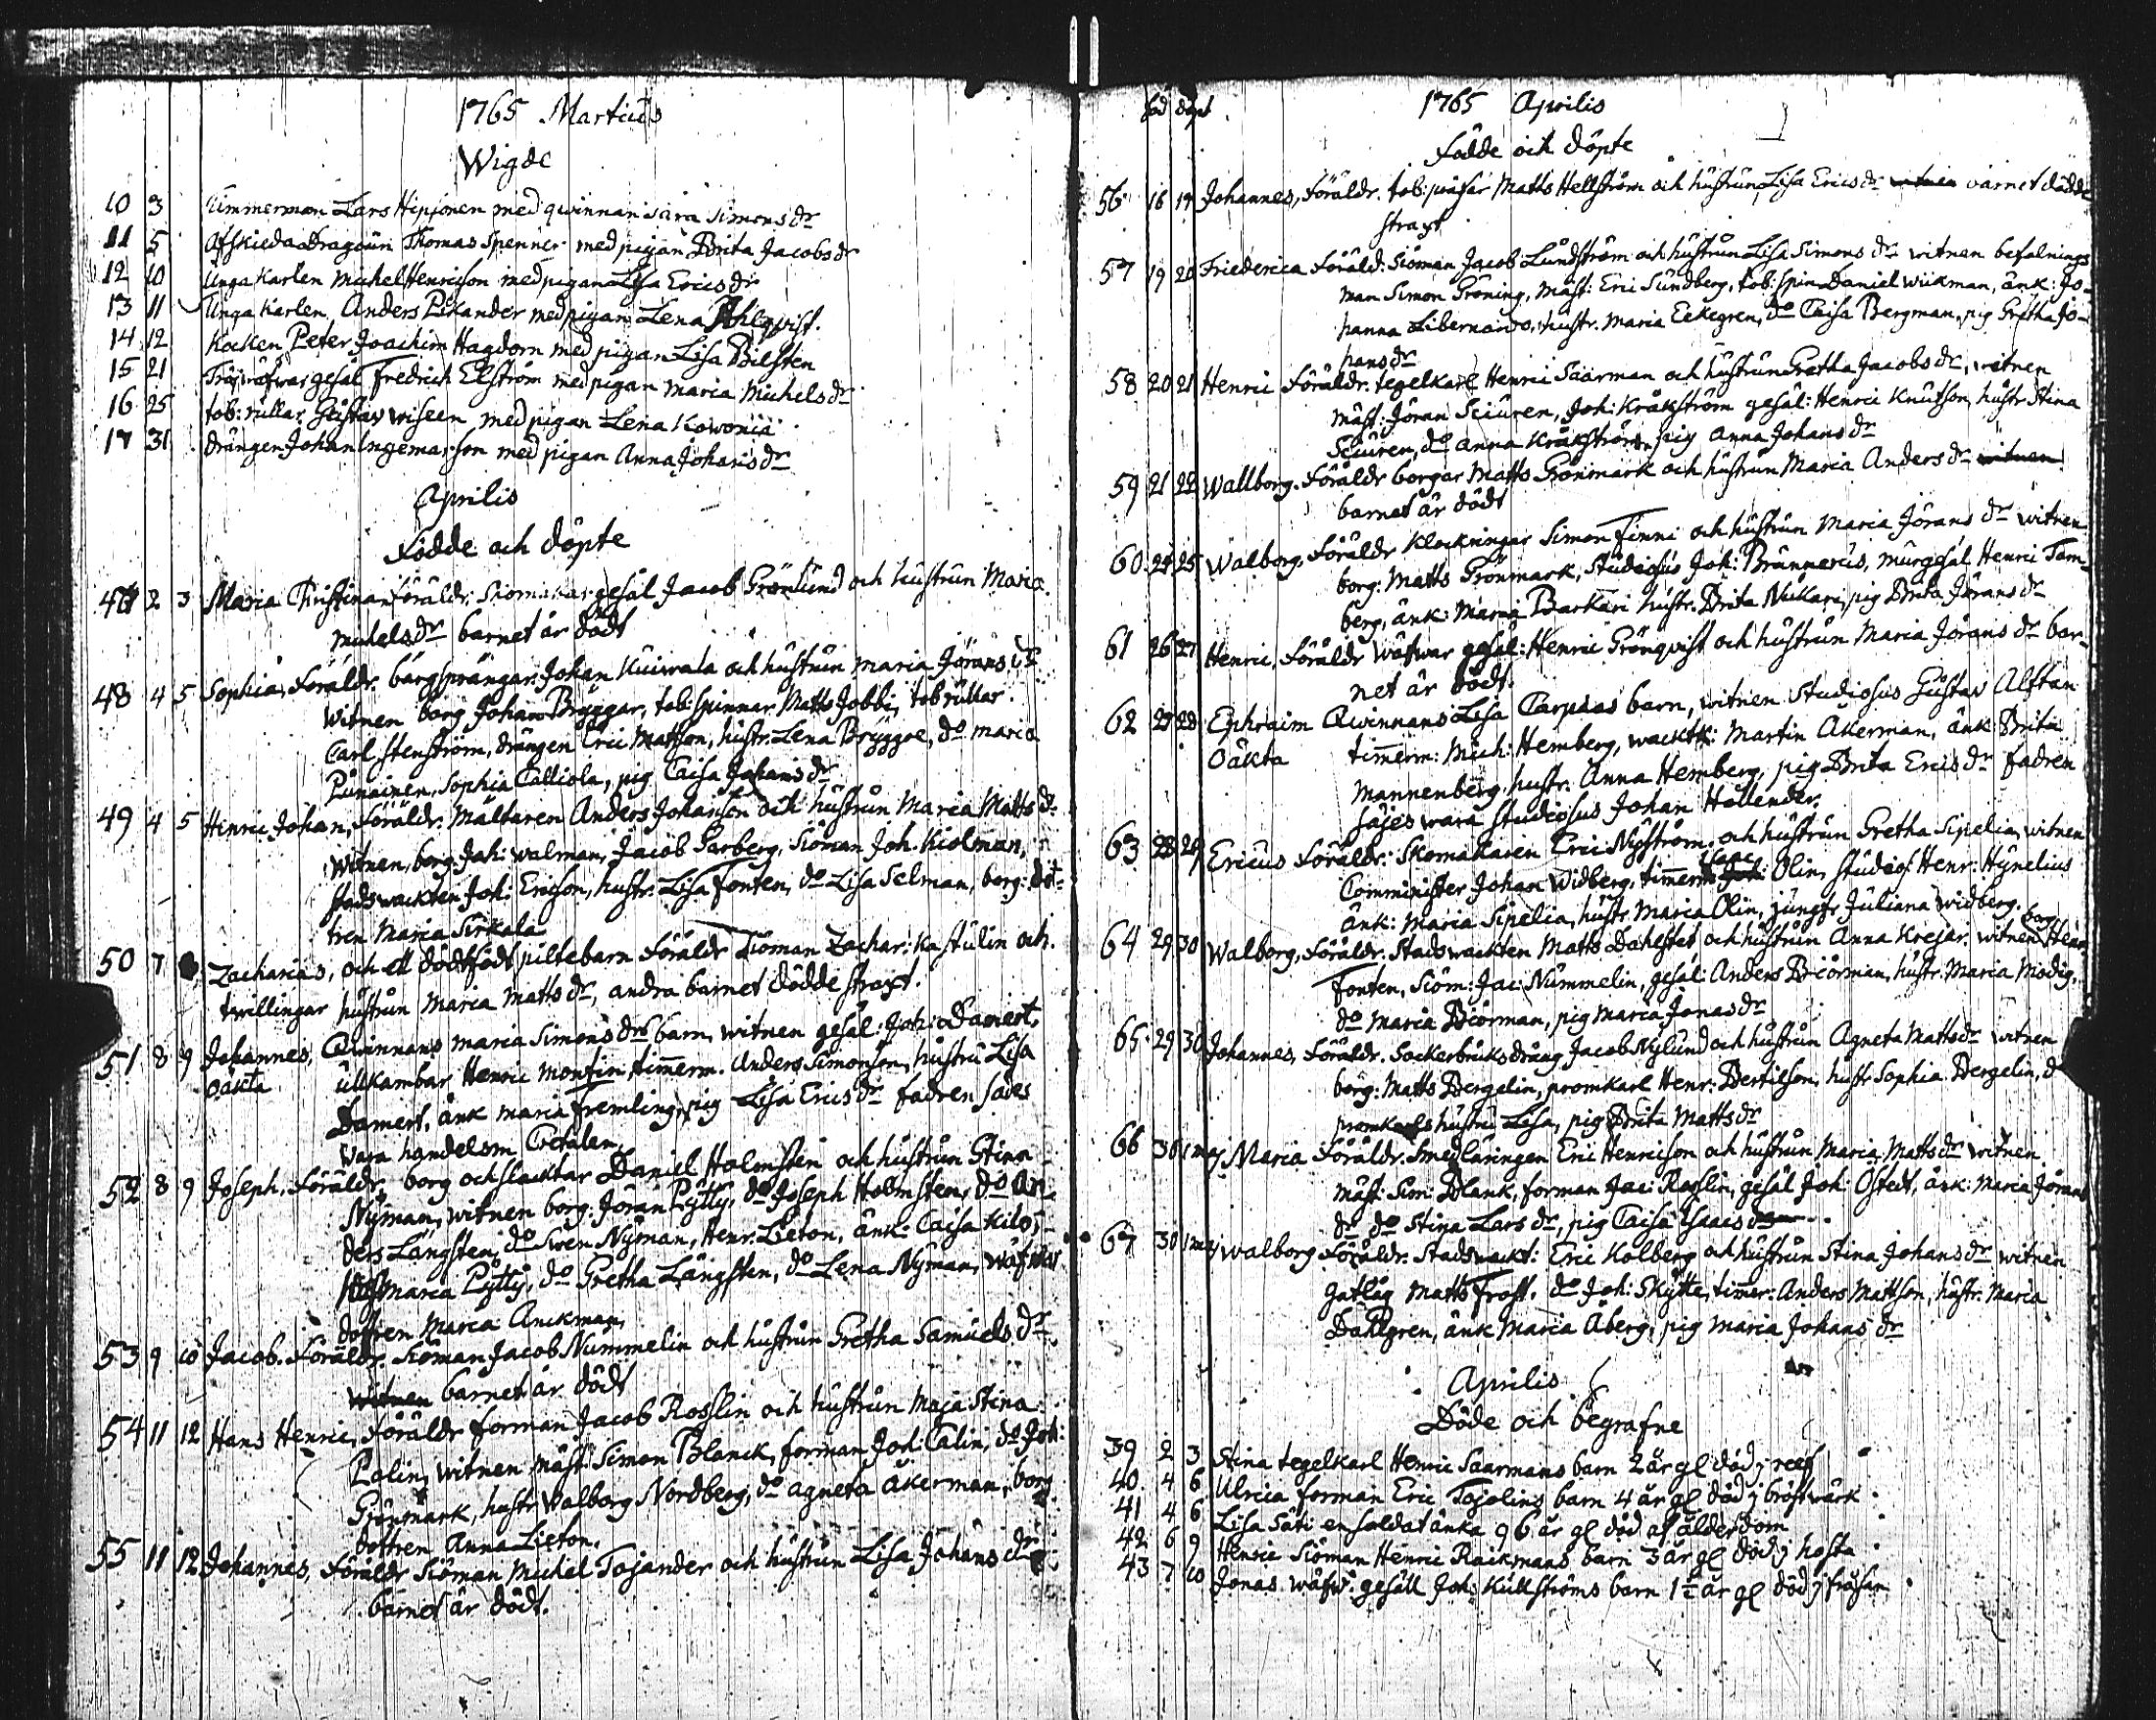 1765 Martius
Wigde
10 3 Timmerman Lars Hipjonen med qwinnan Sara Simons dr
11 5 Afskieda Dragoun Thomas Spenner med pigan Brita Jacobs dr
12 10 Unga Karlen Michel Henricson med pigan Lisa Erics dr
13 11 Unga Karlen Anders Pikander med pigan Lena Ahlqvist.
14 12 Kocken Peter Joachim Hagdorn med pigan Lisa Bilsten
15 21 gesäl Fredrich Elström med pigan Maria Michels dr
16 25 tob: rullar Gustav Wiseen med pigan Lena Kowonia
17 31 drängen Johan Ingemarson med pigan Anna Johans dr
Aprilis
Födde och döpte
47 2 3 Maria Christina, Föräldr. Skomakar gesäl Jacob Grönlund och hustrun Maria
Michels dr barnet är dödt
48 4 5 Sophia, Föräldr. bärgsprängar Johan Kuiwala och hustrun Maria Jörans dr
witnen borg Johan Bryggar, tob: spinnar Matts Jobbi, tob rullar
Carl Stenström, drängen Eric Mattson, hustr. Lena Brygge, do Maria
Punainen, Sophia Calliola, pig Caisa Johans dr
49 4 5 Henric Johan, Föräldr. Mältaren Anders Johanson och hustrun Maria Matts dr
witnen, borg. Joh: Walman, Jacob Garberg, Siöman Joh. Kiolman,
stadswackten Joh: Ericson, hustr. Lisa Fonten, do Lisa Selman, borg: dot-
tren Maria Sirkala
50 7 Zacharias, och ett dödfödt piltebarn Föräldr Siöman Zachar: Kastulin och
twillingar hustrun Maria Matts dr, andra barnet dödde straxt.
51 8 9 Johannes, Qwinnans Maria Simons drs barn, witnen gesäl: Joh: Damert,
oäkta ullkambar Henric Montin, timerm. Anders Simonson, hustru Lisa
Damert, änk Maria Fremling, pig Lisa Erics dr fadren säies
wara handelsm Cretalen
52 8 9 Joseph, Föräldr. borg och slacktar Daniel Holmsten och hustrun Stina
Nyman, witnen borg: Jöran Pytty, do Joseph Holmsten, do An-
ders Längsten, do Swen Nyman, Henr. Lieton, änk: Caisa Kilo,
Maria Pytty, do Gretha Längsten, do Lena Nyman, wäfwar
dottren Maria Anckman,
53 9 10 Jacob. Föräldr. Siöman Jacob Nummelin och hustrun Gretha Samuels dr
witnen barnet är dödt
54 11 12 Hans Henric, Föräldr forman Jacob Rosslin och hustrun Maja Stina
Palin, witnen mäst: Simon Blanck, forman Joh: Calin, do Joh:
Grönmark, hustr Walborg Nordberg, do Agneta Åkerman, borg
dottren Anna Lieton.
55 11 12 Johannes, Föräldr Siöman Michel Tojander och hustrun Lisa Johans dr
barnet är dödt.
föd döpt
1765 Aprilis
Födde och döpte
56 16 17 Johannes, Föräldr. tob: Matts Hellström och hustrun Lisa Erics dr witnen barnet dödde
straxt
57 19 20 Friederica Föräld: Siöman Jacob Lundström och hustrun Lisa Simons dr witnen befalnings
man Simon Gröning, mäst: Eric Sundberg, tob: spin Daniel Wiikman, änk: Jo-
hanna Libernardo, hustr. Maria Eekegren, do Caisa Bergman, pig Gretha Jo-
hans dr
58 20 21 Henric Föräldr. tegelkarl Henric Saarman och hustrun Gretha Jacobs dr, witnen
mäst: Jöran Sciuren, Joh: Kråkström gesäl: Henric Knutson, hustr Stina
Sciuren, do Anna Kråkström, pig Anna Johans dr
59 21 22 Wallborg. Föräldr borgar Matts Grönmark och hustrun Maria Anders dr witnen
barnet är dödt
60 24 25 Walborg, Föräldr Klockringar Simon Finni och hustrun Maria Jörans dr witnen
borg: Matts Grönmark, Studiosus Joh: Brännerus, murgesäl Henric Tam-
berg, änk: Maria Barkari hustr. Brita Nukari, pig Brita Jörans dr
61 26 27 Henric, Föräldr wäfwar gesäl: Henric Grönqvist och hustrun Maria Jörans dr bar-
net är dödt.
62 28 Ephraim Qwinnans Lisa Carpdas barn, witnen Studiosus Gustav Alftan
oäkta timerm: Mich: Hemberg, wacktk: Martin Åkerman, änk Brita
Mannenberg, hustr. Anna Hemberg, pig Brita Erics dr fadren
säjes wara studiosus Johan Hollender.
63 28 29 Ericus Föräldr: Skomakaren Eric Nyström och hustrun Gretha Sipelia, witnen
Comminister Johan Widberg, timerm Olin, studios Henr: Hynelius
änk: Maria Sipelia, hustr. Maria Olin, jungfr Juliana Widberg.
64 29 30 Walborg, Föräldr. Stadswackten Matts Dahlstet och hustrun Anna Krejar. witnen borg Henr
Fonten, Siöm: Jac: Nummelin, gesäl: Anders Biörman, hustr. Maria Modig,
do Maria Biörman, pig Maria Jonas dr
65 29 30 Johannes, Föräldr. Sockerbruks dräng Jacob Nylund och hustrun Agneta Matts dr witnen
borg: Matts Bergelin, promkarl Henr: Bertilson, hustr Sophia Bergelin, d
promkarls hustru Lisa, pig Brita Matts dr
66 30 1 maj Maria Föräldr. Smedläringen Eric Henricson och hustrun Maria Matts dr witnen
mäst: Sim: Blank, forman Jac: Rosslin, gesäl Joh: Östedt, änk: Maria Jörans
dr do Stina Lars dr, pig Caisa Isaacs dr
67 30 1 maj Walborg Föräldr. Stadswackt: Eric Kolberg och hustrun Stina Johans dr witnen
Gatlåg Matts Frost, do Joh: Skytte, timer: Anders Mattson, hustr. Maria
Dahlgren, änk Maria Åberg, pig Maria Johans dr
Aprilis
Döde och begrafne
39 2 3 Stina tegelkarl Henric Saarmans barn 2 år gl död j
40 4 6 Ulrica forman Eric Tojolins barn 4 år gl död j bröstwärk
41 4 6 Lisa Säti en soldat änka 96 år gl död af ålderdom
42 6 9 Henric Siöman Henric Raickmans barn 3 år gl död j hosta
43 7 10 Jonas wäfw: gesäll Joh: Kullströms barn 1½ år gl död j fråssan